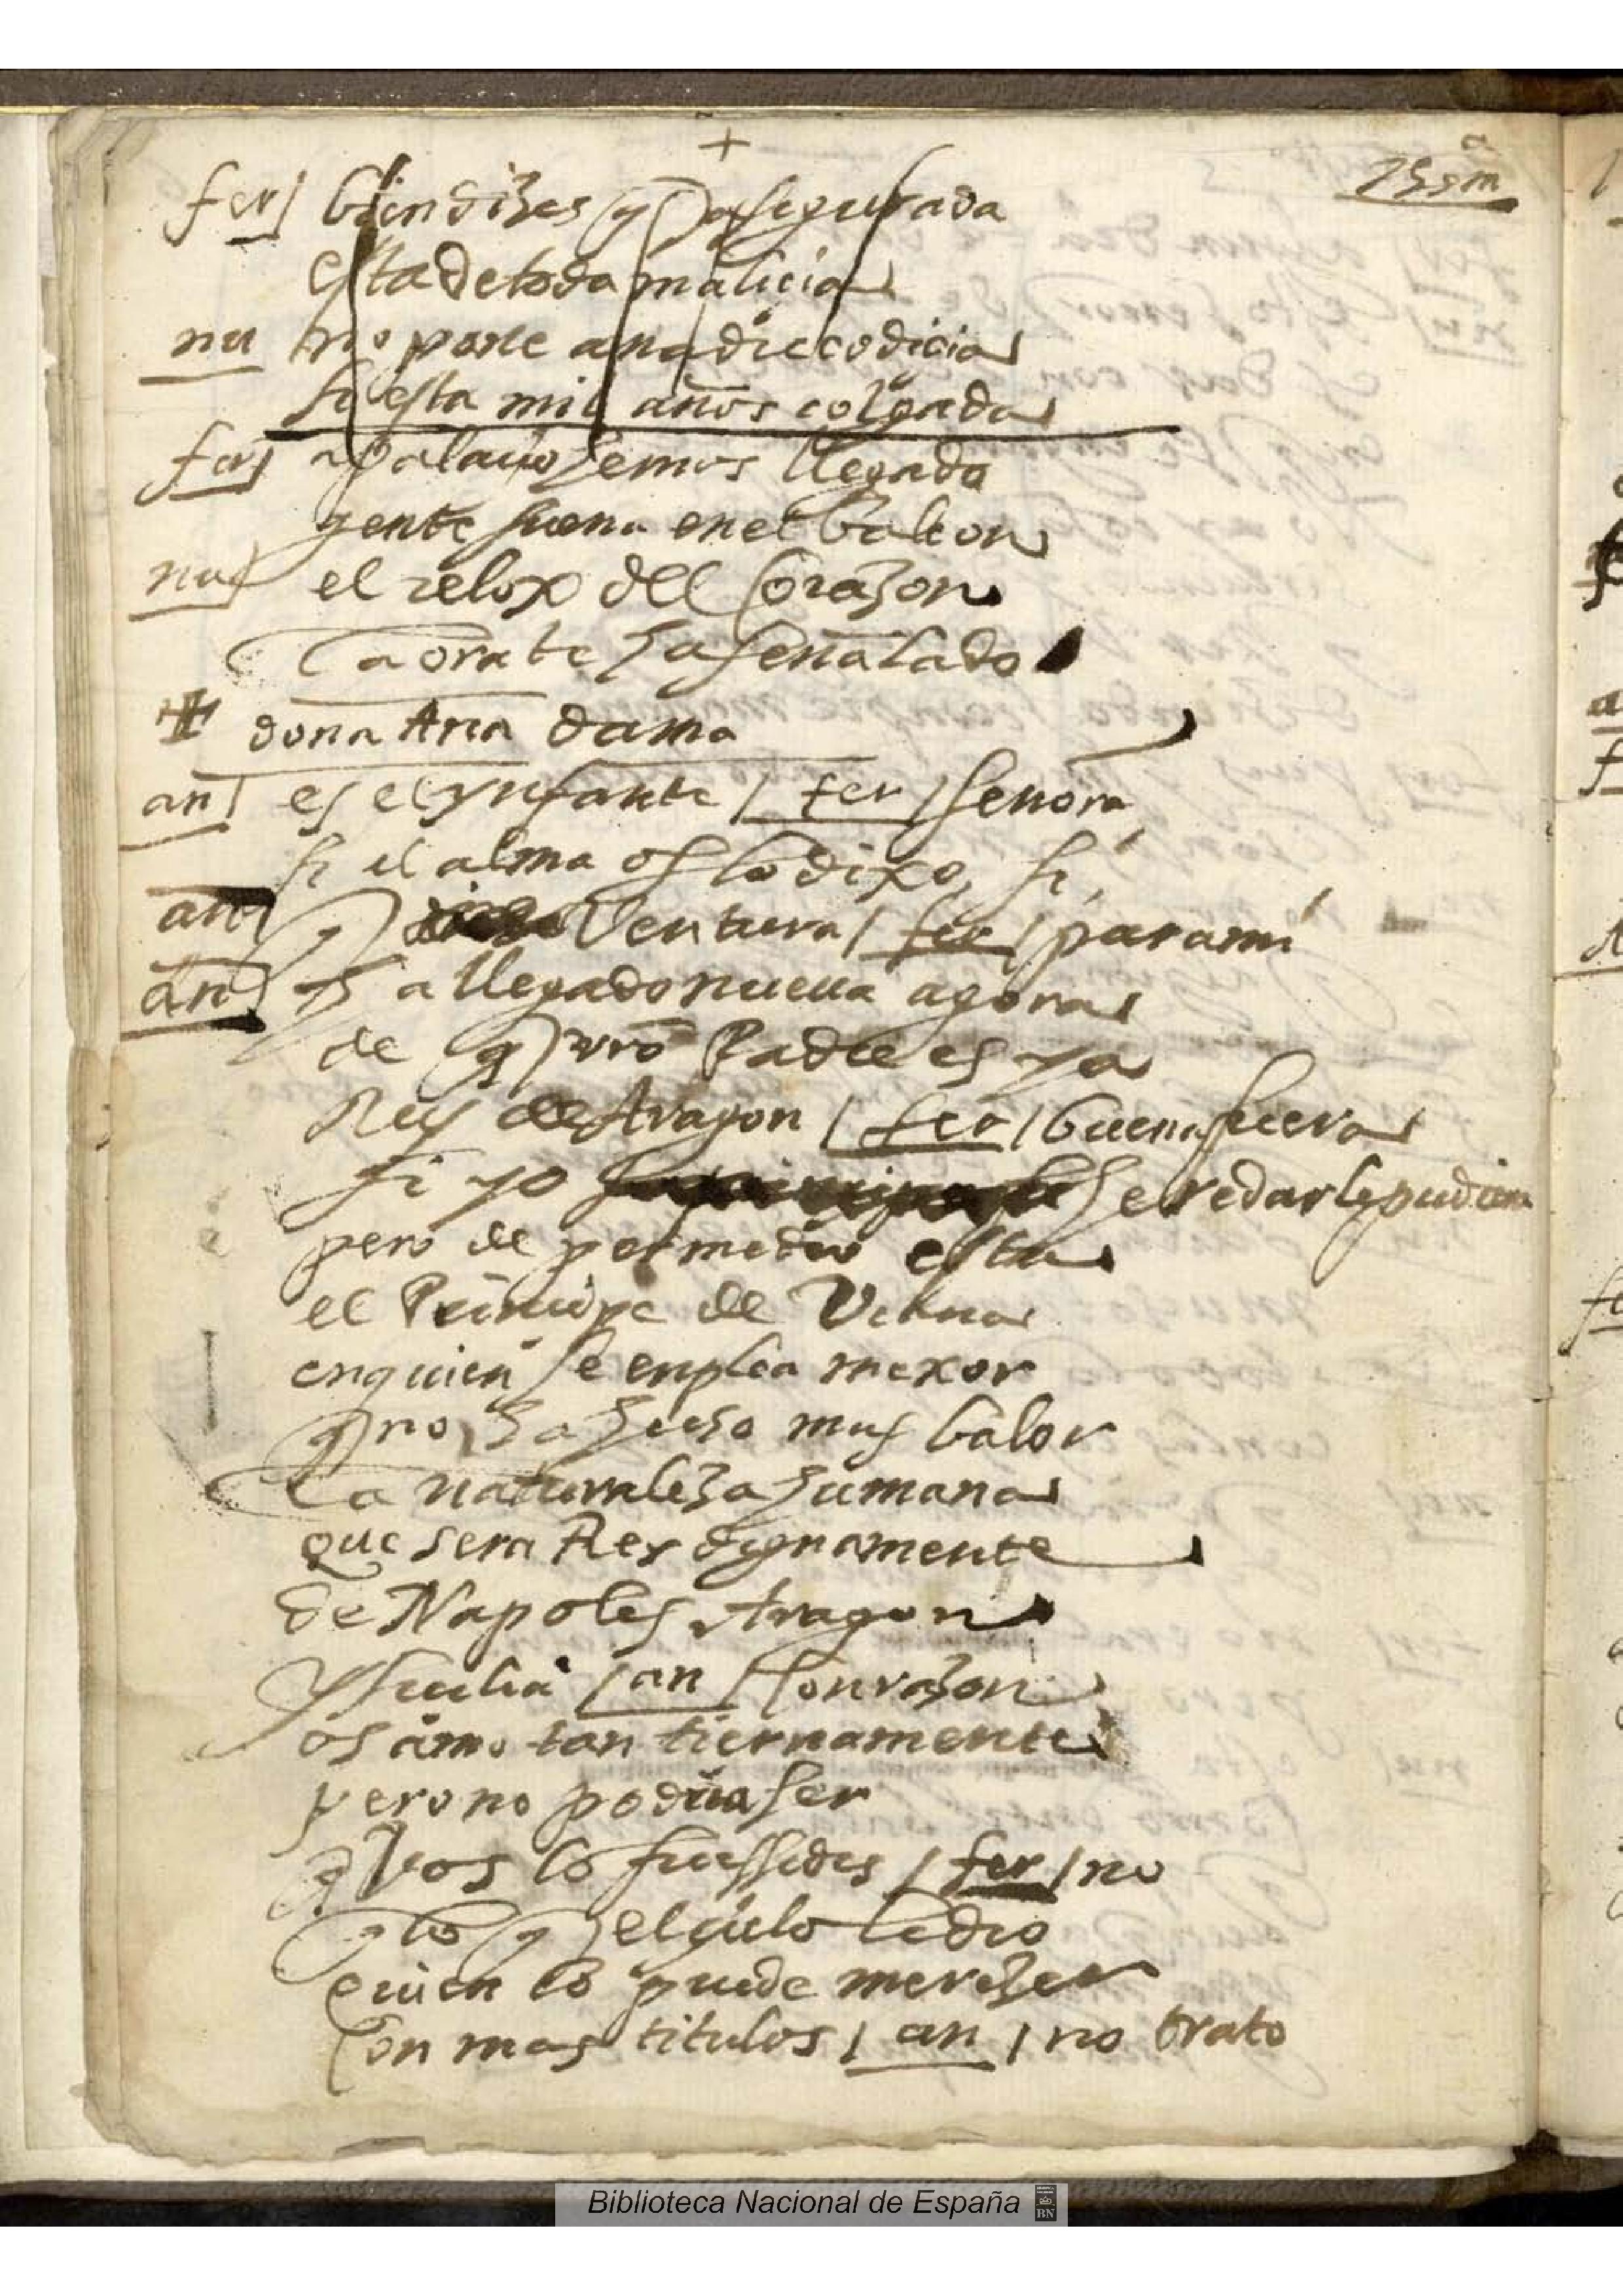 +
fer| bien dizes q asegurada
esta de toda malicia
nu no pone a nadie codicia
si esta mil años colgada
fer| a palacio hemos llegado
gente suena en el balcon
nu| el relox del coraзon
la ora te ha señalado
dona Ana dama
an| es el ynfante / fer / señora
si el alma os lo dixo, si,
an| q ventura / fer / para mi
an| ha llegado nueua agora
de q vro Padre es ya
Rey de Aragon / fer / buena fuera
si yo heredarle pudiera
pero de por medio esta
el Principe de Viana
en quien se enplea mexor
q no ha hecho mas balor
la naturaleza humana
que sera Rey dignamente
de Napoles Aragon
y sicilia / an / con razon
os amo tan tiernamente
pero no podria ser
q vos lo fuessedes / fer / no
q lo q el çielo le dio
quien lo puede merezer
con mas titulos / an / no trato
Biblioteca Nacional de España
BN